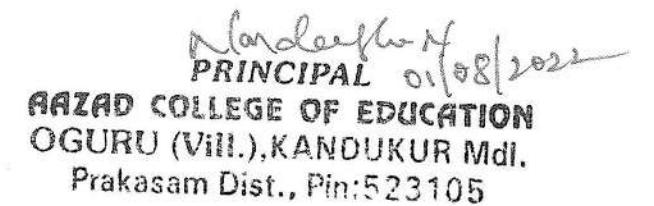 PRINCIPAL 01/08/2022
AAZAD COLLEGE OF EDUCATION
OGURU (Vill.),KANDUKUR Mdl.
Prakasam Dist., Pin:523105